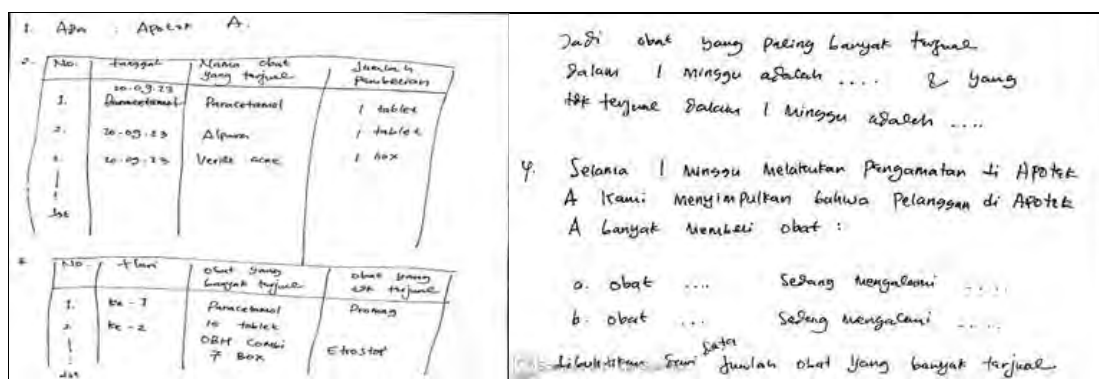 1. Ada : Apotek A.
2.
No. tanggal Nama obat yang terjual Jumlah Pembelian
1. 20.09.23 Paracetamol Paracetamol 1 tablet
2. 20-09-23 Alpara 1 tablet
3. 20-09-23 Verile acne 1 box
dst
3.
No Hari obat yang banyak terjual obat yang tdk terjual
1. ke-1 Paracetamol Promag
10 tablet
2. ke-2 OBH Combi Etrostop
7 BOX
dst
Jadi obat yang paling banyak terjual
dalam 1 minggu adalah .... & yang
tdk terjual dalam 1 minggu adalah ....
4. Selama 1 minggu melakukan Pengamatan di APotek
A Kami menyimpulkan bahwa Pelanggan di APotek
A banyak membeli obat :
a. obat ... Sedang mengalami ....
b. obat ... Sedang mengalami ....
dibuktikan dari data Jumlah obat yang banyak terjual